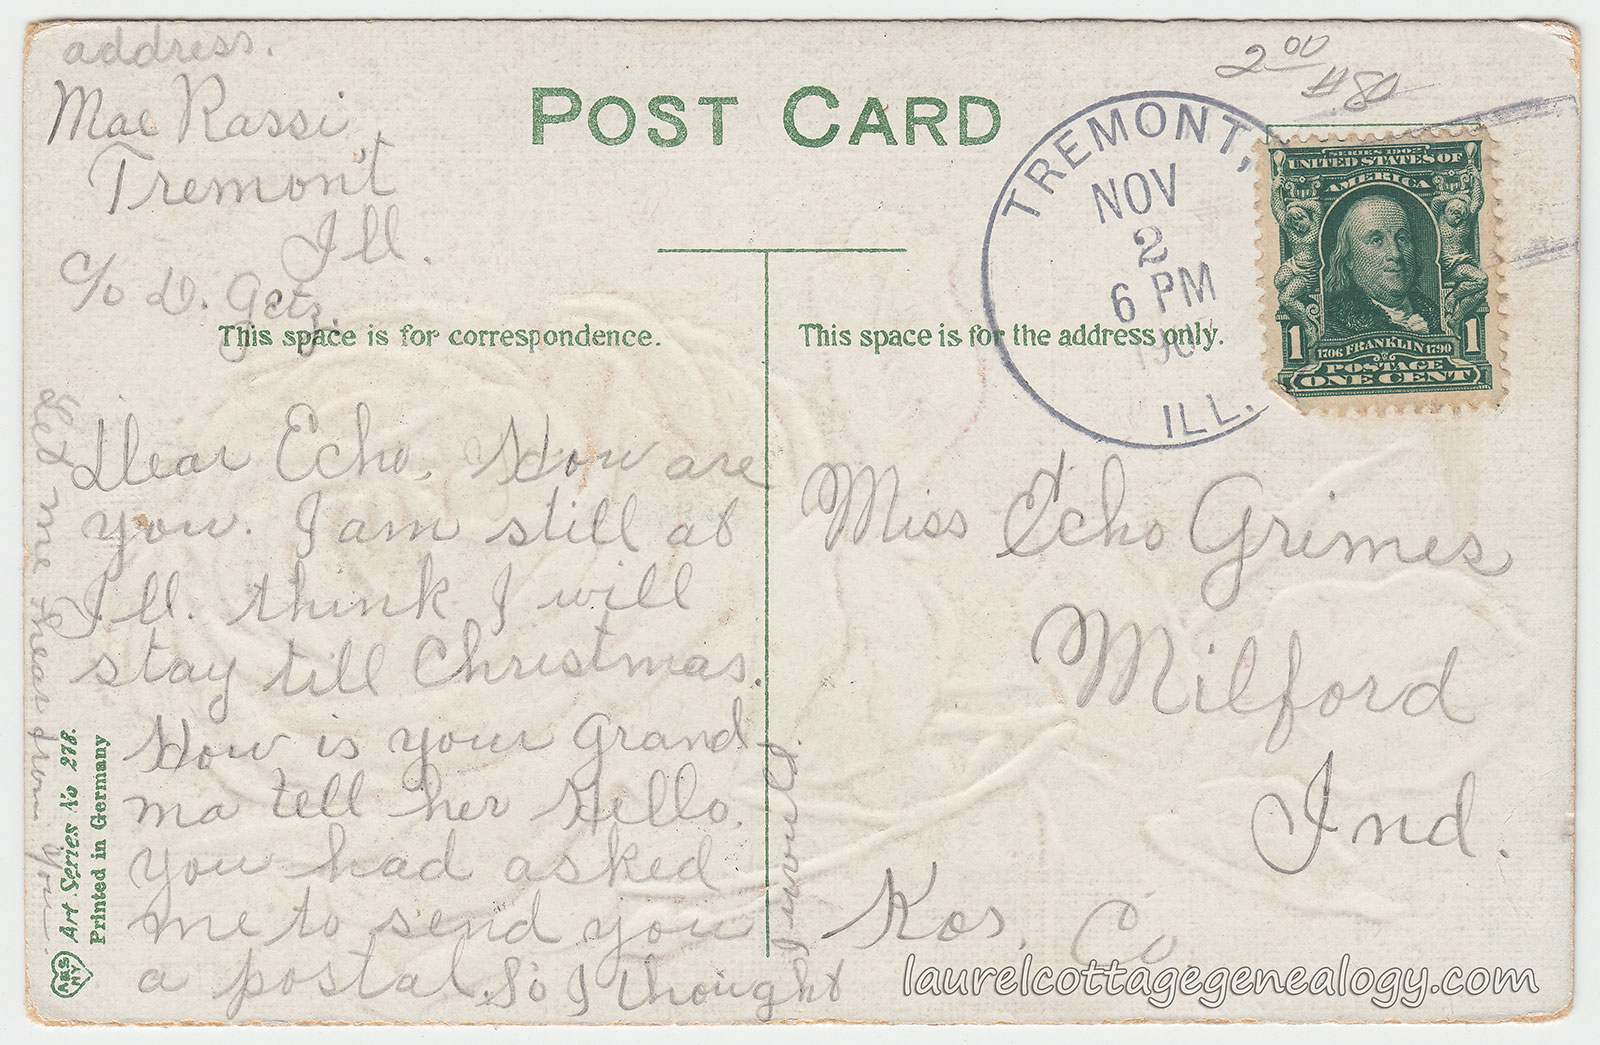 address.
Mae Rassi
Tremont
Ill.
c/o D. Getz.
POST CARD
2 00
480
TREMONT,
NOV
2
6 PM
190
ILL.
SERIES 1902
UNITED STATES OF
AMERICA
1 1
1706 FRANKLIN 1790
POSTAGE
ONE CENT
This space is for correspondence.
This space is for the address only.
Dear Echo, How are
you. I am still at
Ill. think I will
stay till Christmas.
How is your Grand
ma tell her Hello.
you had asked
me to send you
a postal. So I thought
I would.
Let me hear from you.
Miss Echo Grimes
Milford
Ind.
Kos. Co.
Art Series No 278.
Printed in Germany
ABS
NY
laurelcottagegenealogy.com